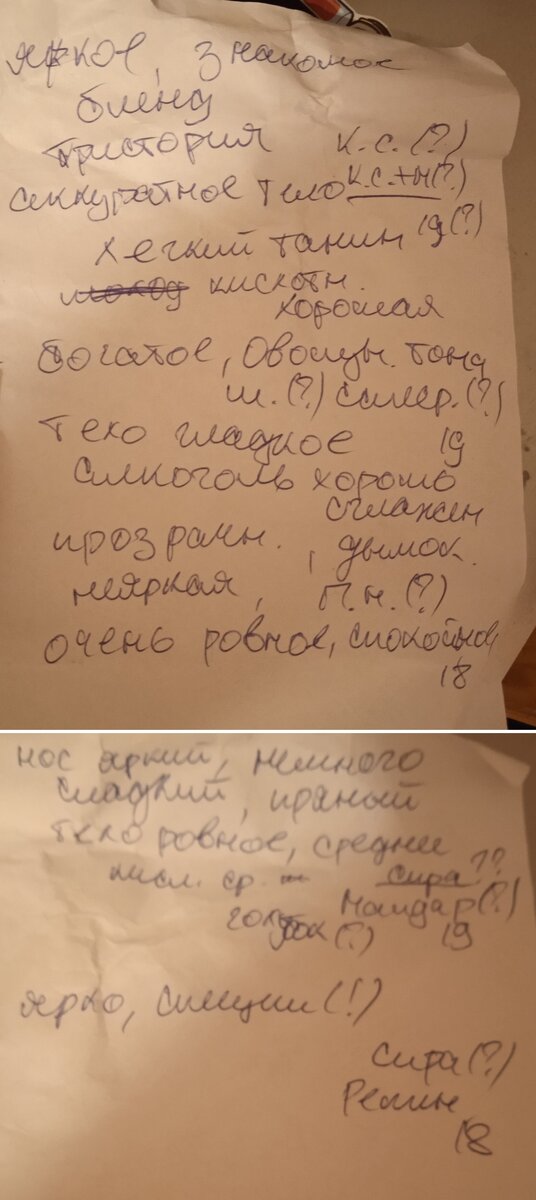 яркое, знакомое
бленд
К.С.(?)
аккуратное тело К.С.+М(?)
легкий танин 19(?)
кислотн.
хорошая
богатое, Овощн. тона
ш.(?) САПЕР.(?)
тело гладкое 19
алкоголь хорошо
сглажен
прозрачн., дымок.
неяркая, П.Н.(?)
очень ровное, спокойное,
18
нос яркий, немного
сладкий, пряный
тело ровное, среднее
кисл. ср. Сира??
(?)
(?) 19
ярко, специи(!)
Сира(?)
18